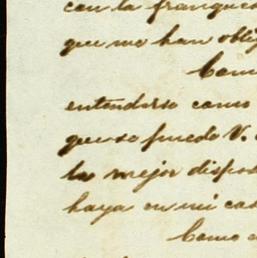 con la franquez
que me han oblig
Como
entenderse como
que se puede V.
la mejor dispos
haya en mi cas
Como